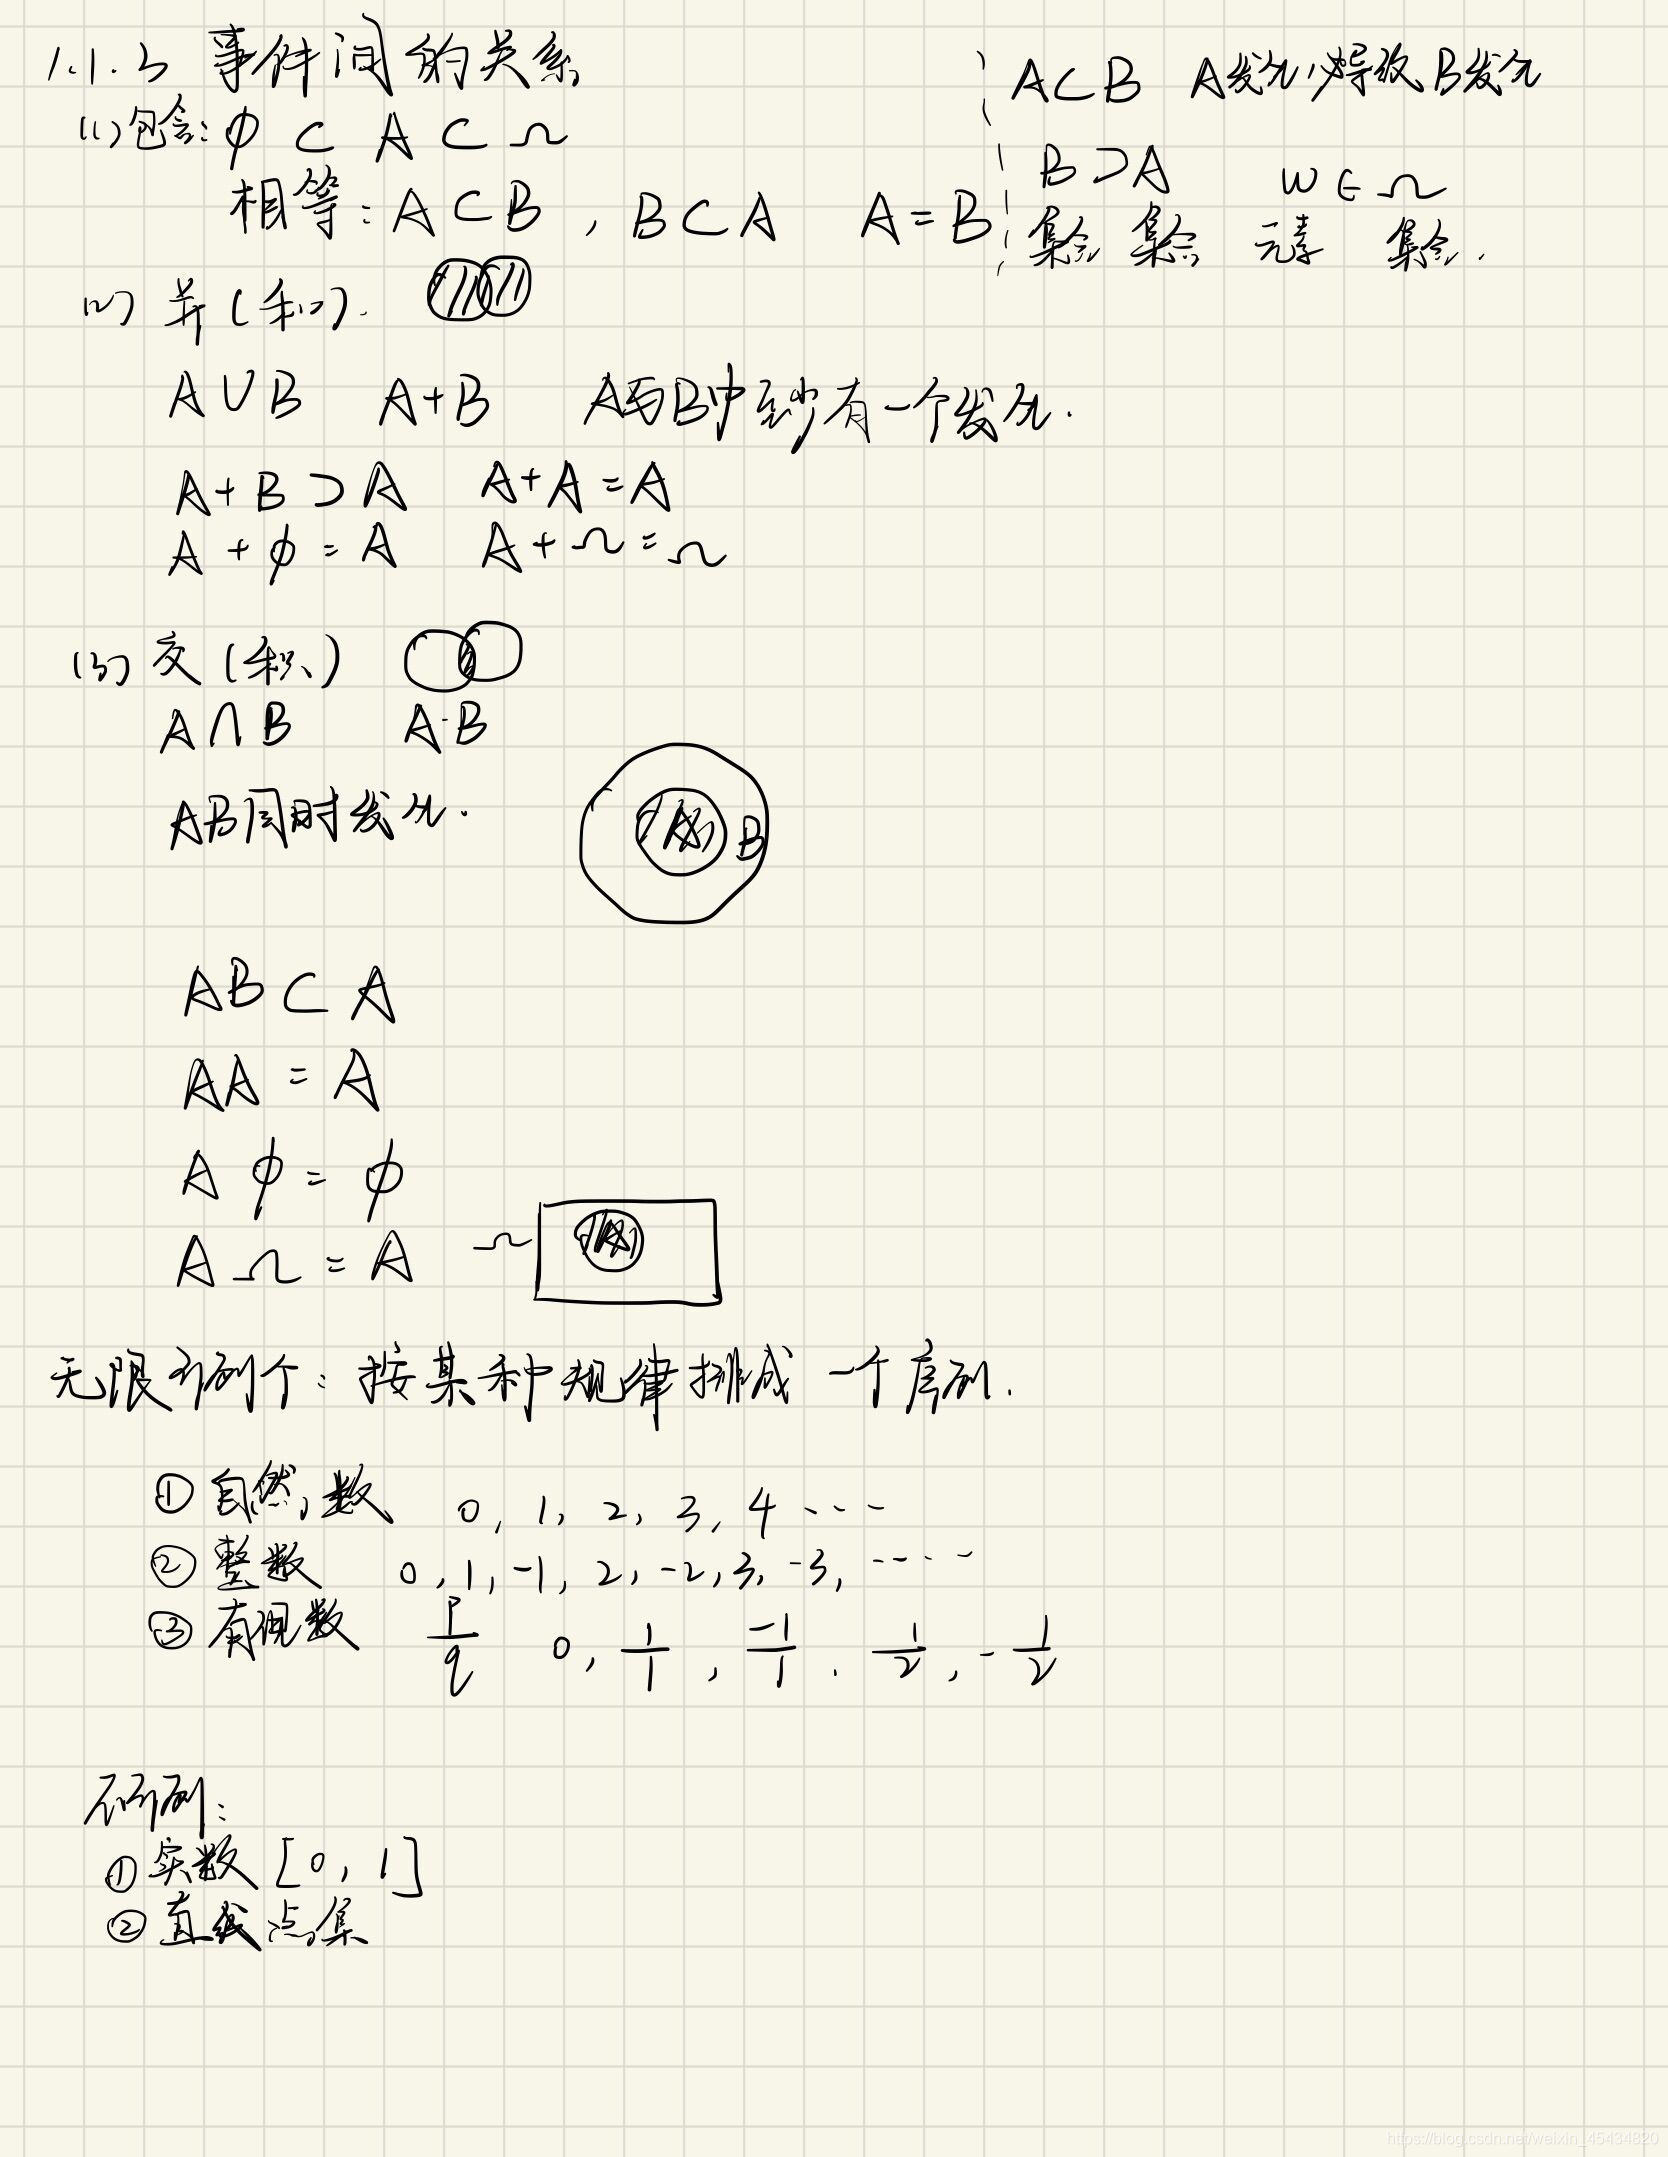 1.1.3 事件间的关系
(1)包含: φ ⊂ A ⊂ Ω
相等: A⊂B , B⊂A A=B
A⊂B A发生必导致B发生
B⊃A ω∈Ω
集合 集合 元素 集合.
(2) 并(和).
A∪B A+B A与B中至少有一个发生.
A+B⊃A A+A=A
A+φ=A A+Ω=Ω
(3) 交(积)
A∩B A·B
AB同时发生.
A B
AB⊂A
AA=A
Aφ=φ
AΩ=A Ω A
无限可列个: 按某种规律排成一个序列.
① 自然数 0, 1, 2, 3, 4 ····
② 整数 0, 1, -1, 2, -2, 3, -3, ·····
③ 有理数 p/q 0, 1/1, -1/1, 1/2, -1/2
不可列:
① 实数 [0, 1]
② 直线点集
https://blog.csdn.net/weixin_45434820